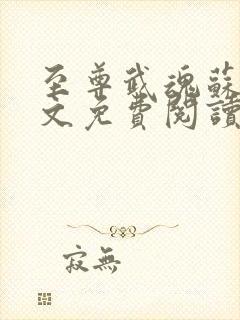 至尊武魂蘇
文免費閱讀
寂無